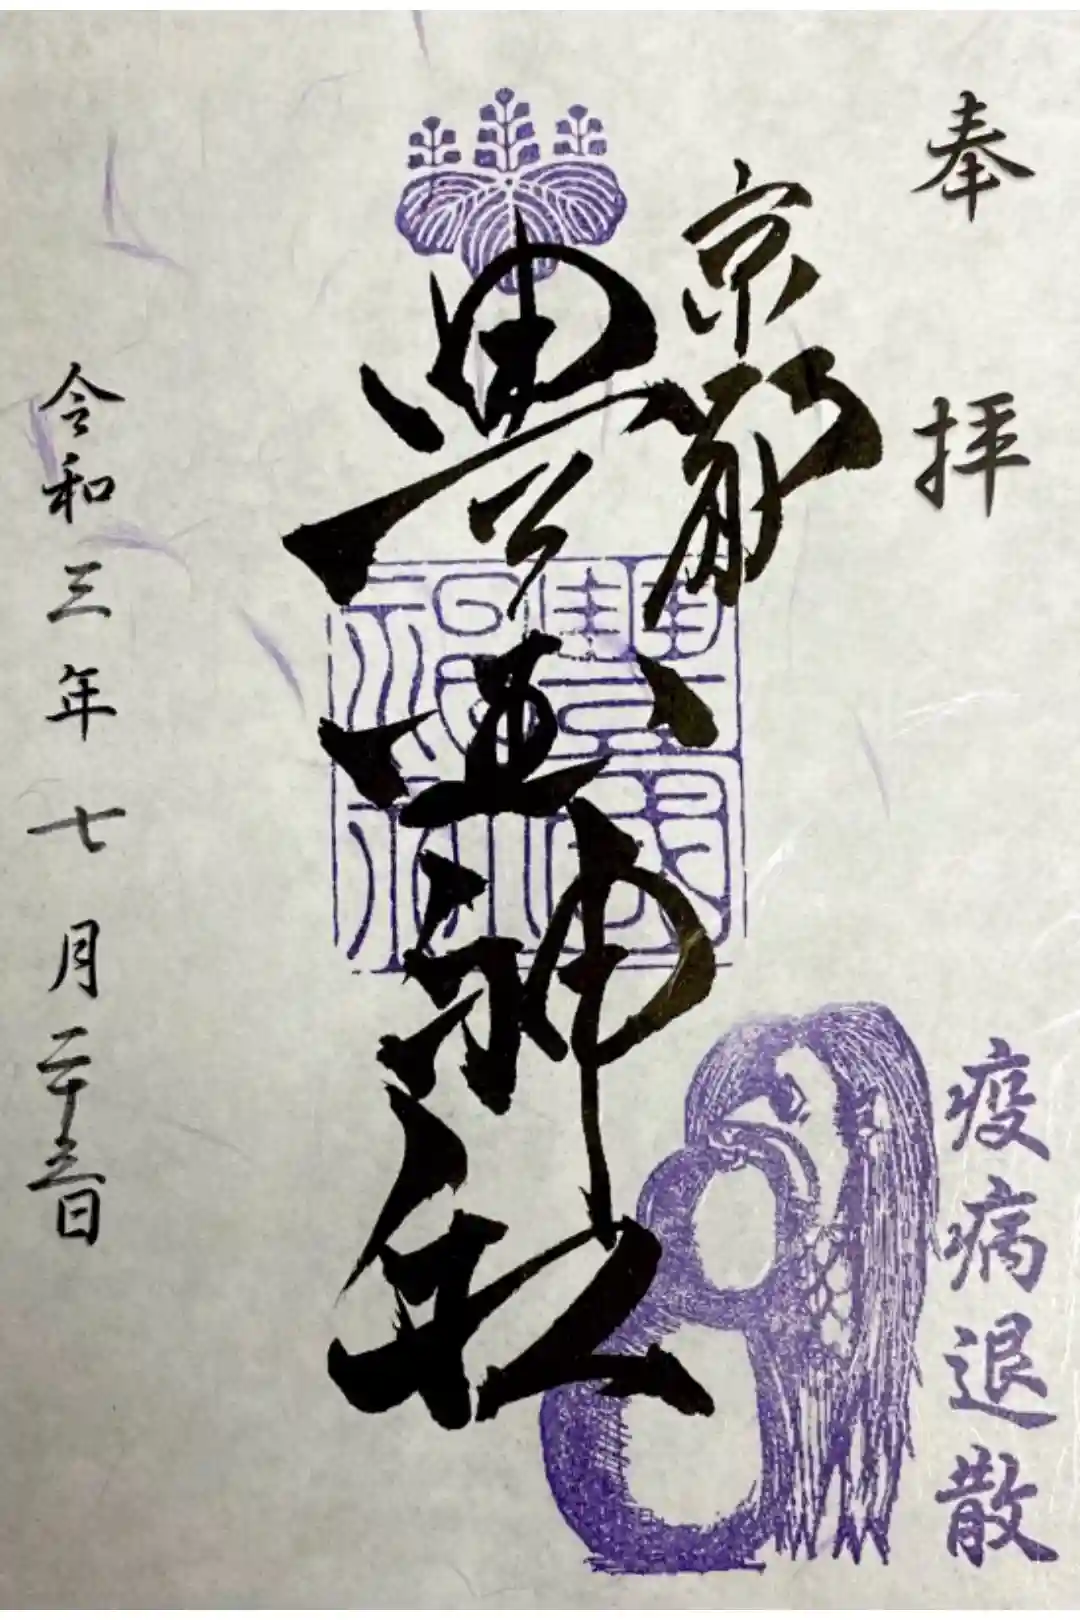 奉拝
京都
豊国神社
令和三年七月二十五日
疫病退散